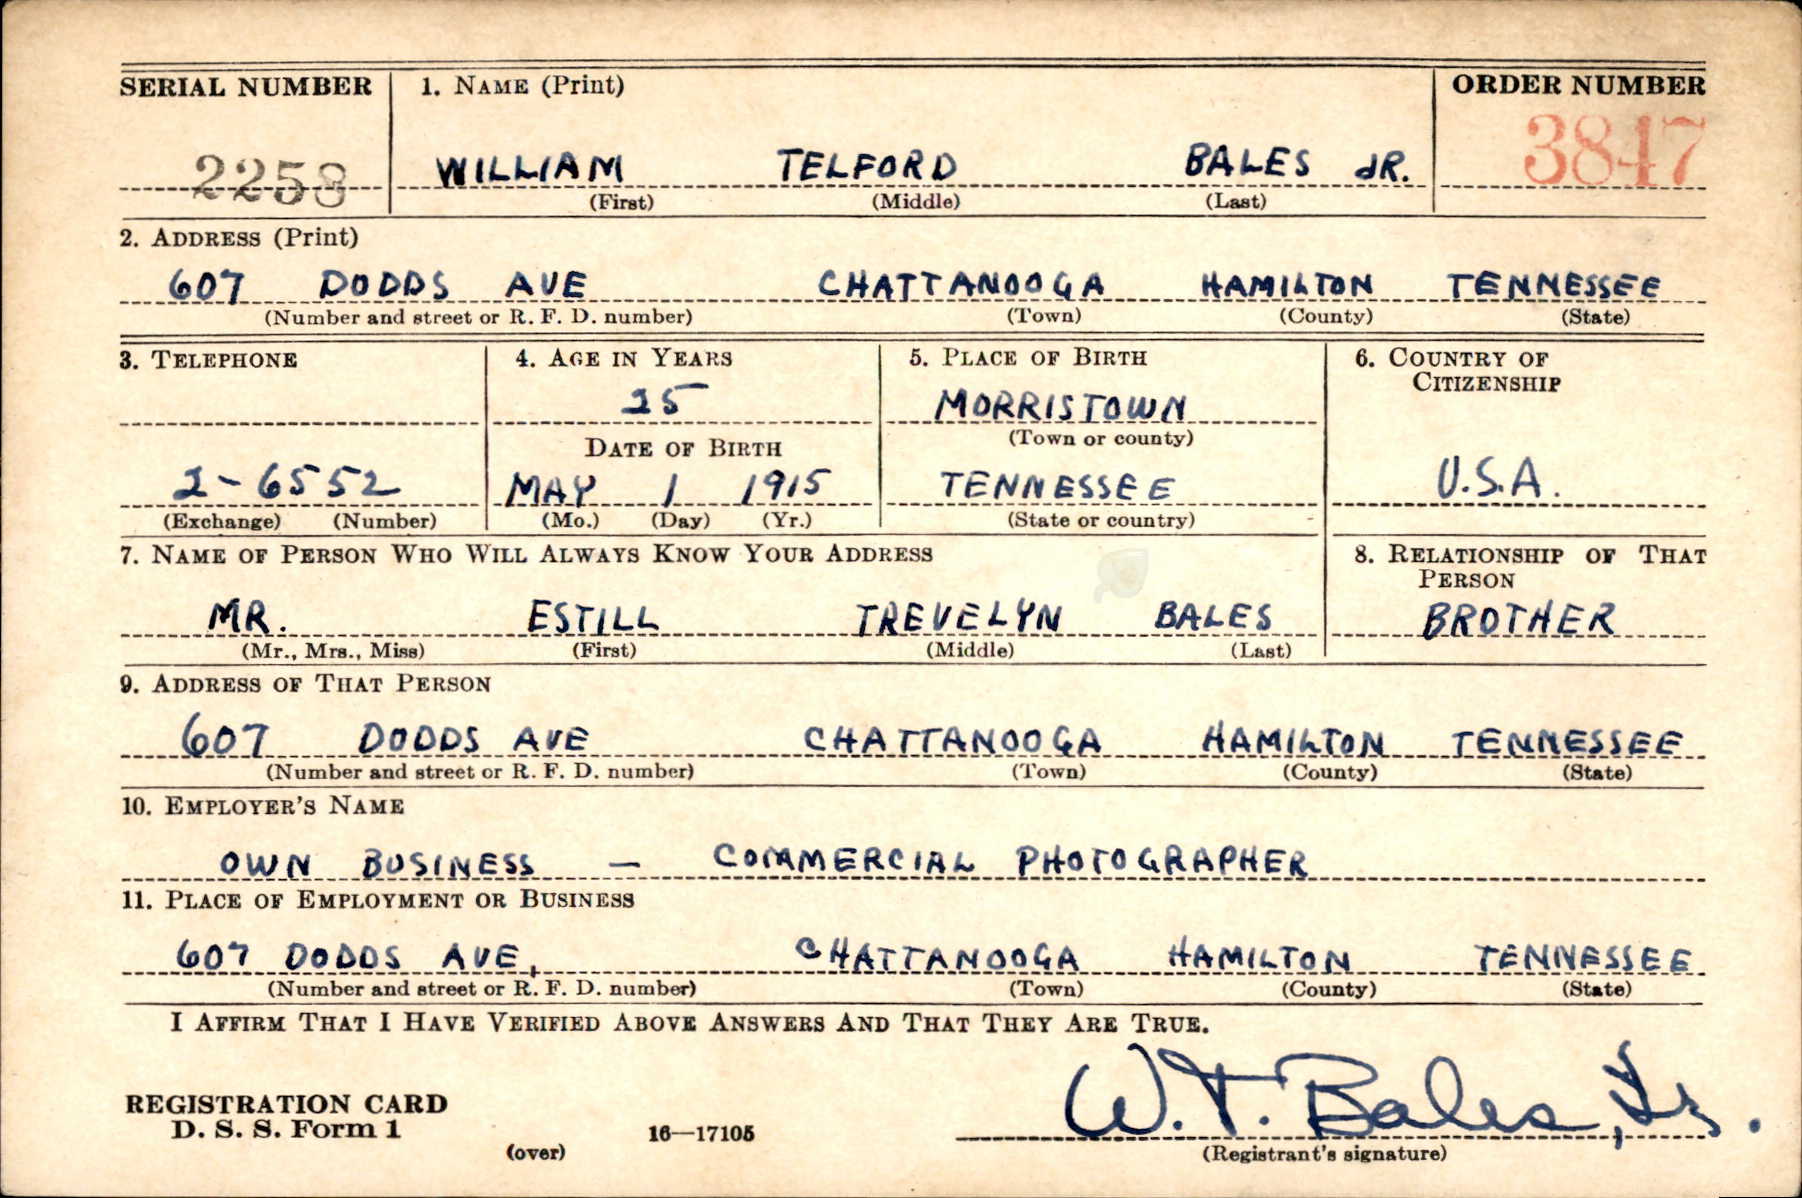 SERIAL NUMBER 1. NAME (Print) ORDER NUMBER
2258 WILLIAM TELFORD BALES JR. 3847
(First) (Middle) (Last)
2. ADDRESS (Print)
607 DODDS AVE CHATTANOOGA HAMILTON TENNESSEE
(Number and street or R. F. D. number) (Town) (County) (State)
3. TELEPHONE 4. AGE IN YEARS 5. PLACE OF BIRTH 6. COUNTRY OF
CITIZENSHIP
25 MORRISTOWN
DATE OF BIRTH (Town or county)
2-6552 MAY 1 1915 TENNESSEE U.S.A.
(Exchange) (Number) (Mo.) (Day) (Yr.) (State or country)
7. NAME OF PERSON WHO WILL ALWAYS KNOW YOUR ADDRESS 8. RELATIONSHIP OF THAT
PERSON
MR. ESTILL TREVELYN BALES BROTHER
(Mr., Mrs., Miss) (First) (Middle) (Last)
9. ADDRESS OF THAT PERSON
607 DODDS AVE CHATTANOOGA HAMILTON TENNESSEE
(Number and street or R. F. D. number) (Town) (County) (State)
10. EMPLOYER'S NAME
OWN BUSINESS — COMMERCIAL PHOTOGRAPHER
11. PLACE OF EMPLOYMENT OR BUSINESS
607 DODDS AVE, CHATTANOOGA HAMILTON TENNESSEE
(Number and street or R. F. D. number) (Town) (County) (State)
I AFFIRM THAT I HAVE VERIFIED ABOVE ANSWERS AND THAT THEY ARE TRUE.
REGISTRATION CARD
D. S. S. Form 1
(over) 16—17105
W. T. Bales, Jr.
(Registrant's signature)